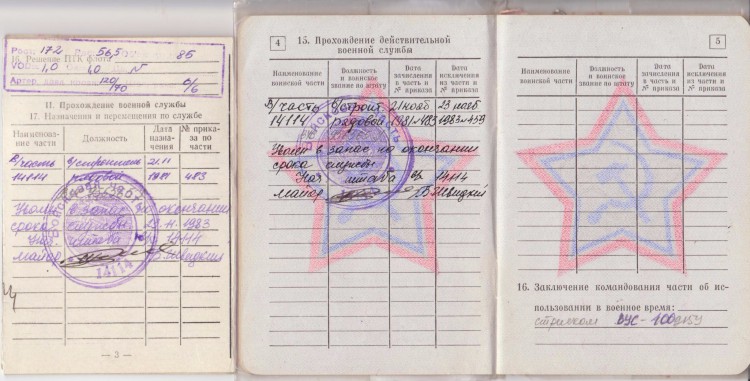 Рост 172 Вес 56,5 85
16. Решение ПТК флота
VOD 1,0 1,0 N
Артер. давл. 120/70 6/6
II. Прохождение военной службы
17. Назначения и перемещения по службе
Наименова-
ние части
Должность
Дата
назна-
чения
№ прика-
за по
части
В/часть 21.11
14114 рядовой 1981 483
Уволен в запас по окончании
срока службы 23.11.1983
Нач. штаба 14114
майор В Швидкий
14114
— 3 —
4
15. Прохождение действительной
военной службы
Наименование
воинской части
Должность
и воинское
звание по штату
Дата
зачисления
в часть и
№ приказа
Дата
исключения
из части и
№ приказа
В/часть 21 нояб 23 нояб
14114 рядовой 1981 №483 1983 №459
Уволен в запас по окончании
срока службы
Нач штаба 14114
майор В Швидкий
5
Наименование
воинской части
Должность
и воинское
звание по штату
Дата
зачисления
в часть и
№ приказа
Дата
исключения
из части и
№ приказа
16. Заключение командования части об ис-
пользовании в военное время:
стрелком ВУС-100